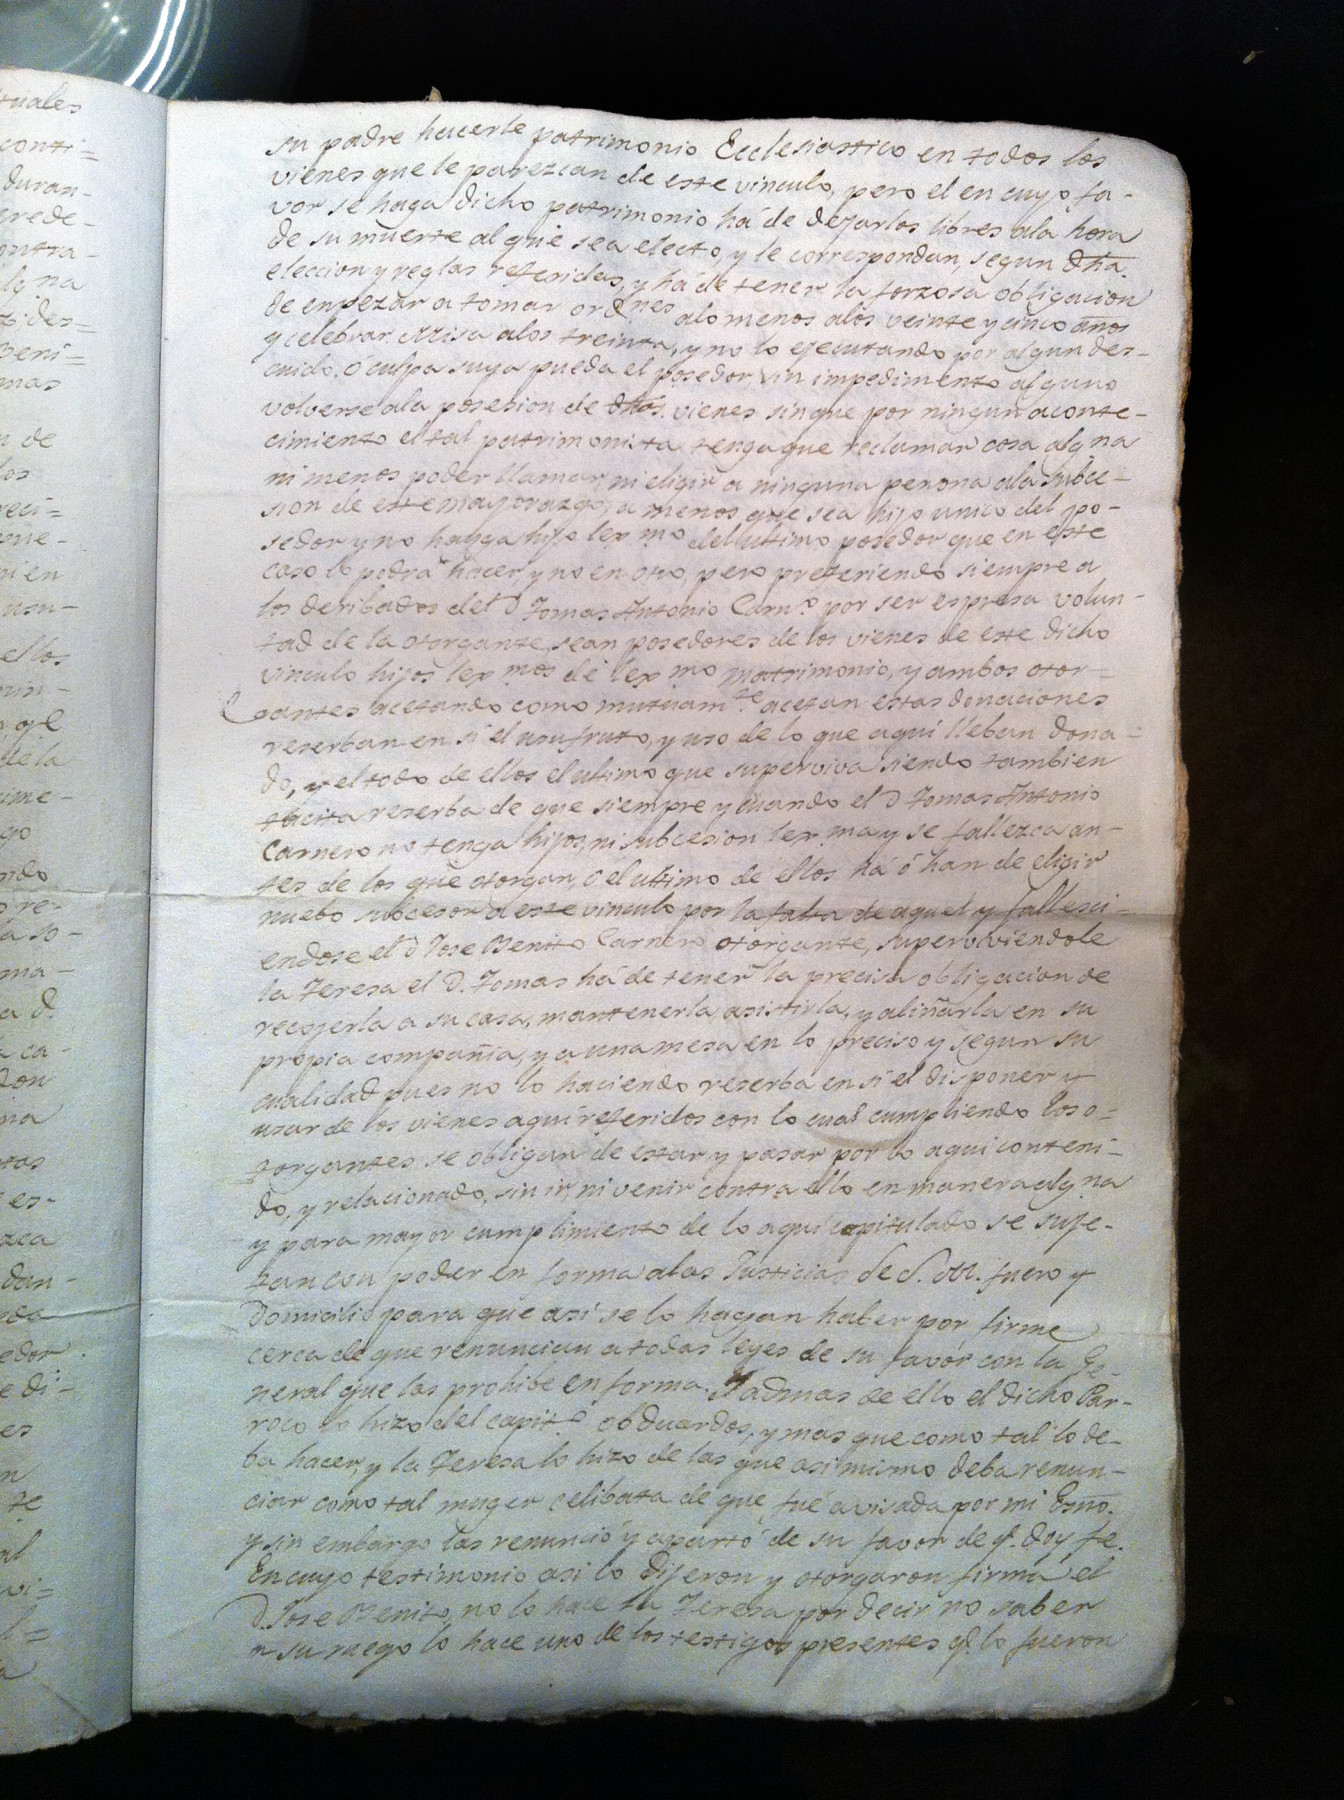 su padre hacerle patrimonio Ecclesiastico en todos los
vienes que le parezcan de este vinculo, pero el en cuyo fa-
vor se haga dicho patrimonio há de dejarlos libres ala hora
de su muerte al que sea electo, y le correspondan, segun dha.
eleccion y reglas referidas, y há de tener la forzosa obligacion
de enpezar a tomar ordnes alo menos alos veinte y cinco años
y celebrar Misa alos treinta, y no lo ejecutando por algun des-
cuido, ó culpa suya pueda el posedor sin impedimento alguno
volverse ala posesion de dhos. vienes sin que por ningun aconte-
cimiento el tal patrimonista tenga que reclamar cosa algna
ni menos poder llamar, ni eligir a ninguna persona ala subce-
sion de este mayorazgo, a menos que sea hijo unico del po-
sedor y no hayga hijo lexmo del ultimo posedor que en este
caso lo podrá hacer y no en otro, pero prefiriendo siempre a
los deribados del D Tomas Antonio Carno. por ser espresa volun-
tad de la otorgante, sean posedores de los vienes de este dicho
vinculo hijos lexmos de lexmo matrimonio, y ambos otor-
gantes acetando como mutuamte. acetan estas donaciones
reserban en si el usufruto, y uso de lo que aqui lleban dona-
do, y el todo de ellos el ultimo que superviva siendo tambien
tacita reserba de que siempre y cuando el D Tomas Antonio
Carnero no tenga hijos, ni subcesion lexma y se fallezca an-
tes de los que otorgan, o el ultimo de ellos há ó han de eligir
nuebo subcesor a este vinculo por la falta de aquel y falleci-
endose el D Jose Benito Carnero otorgante, superviviendole
la Teresa el D. Tomas há de tener la precisa obligacion de
recojerla a su casa, mantenerla asistirla, y aliñarla en su
propia compañia, y a una mesa en lo preciso y segun su
cualidad pues no lo haciendo reserba en sí el disponer y
usar de los vienes aquí referidos con lo cual cumpliendo los o=
torgantes se obligan de estar y pasar por lo aqui conteni-
do, y relacionado, sin ir, ni venir contra ello en manera algna
y para mayor cumplimiento de lo aquí capitulado se suje-
tan con poder en forma alas Justicias de S. M. fuero y
Domicilio para que así se lo hagan haber por firme
cerca de que renuncian a todas leyes de su favór con la Ge-
neral que las prohibe en forma. Y admas de ello el dicho Par-
roco lo hizo del capito. obduardos, y mas que como tal lo de-
ba hacer, y la Teresa lo hizo de las que asimismo deba renun-
ciar como tal muger celibata de que fué avisada por mi Esno.
y sin embargo las renunció y apartó de su favor de q. doy fe.
En cuyo testimonio asi lo dijeron y otorgaron firmá el
D. Jose Benito, no lo hace la Teresa por decir no saber
a su ruego lo hace uno de los testigos presentes q. lo fueron